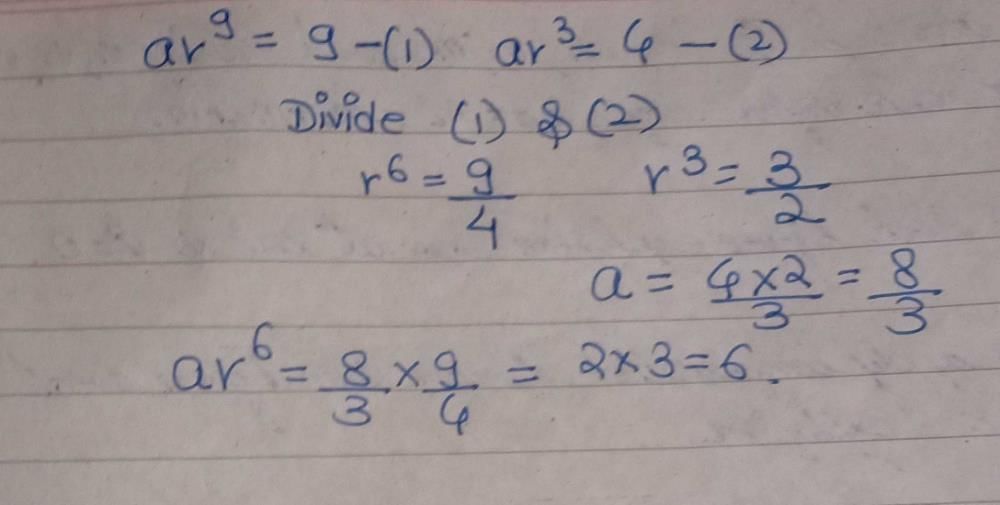 ar⁹ = 9 -(1) ar³ = 4 - (2)
Divide (1) & (2)
r⁶ = 9/4 r³ = 3/2
a = 4×2/3 = 8/3
ar⁶ = 8/3 × 9/4 = 2×3 = 6.